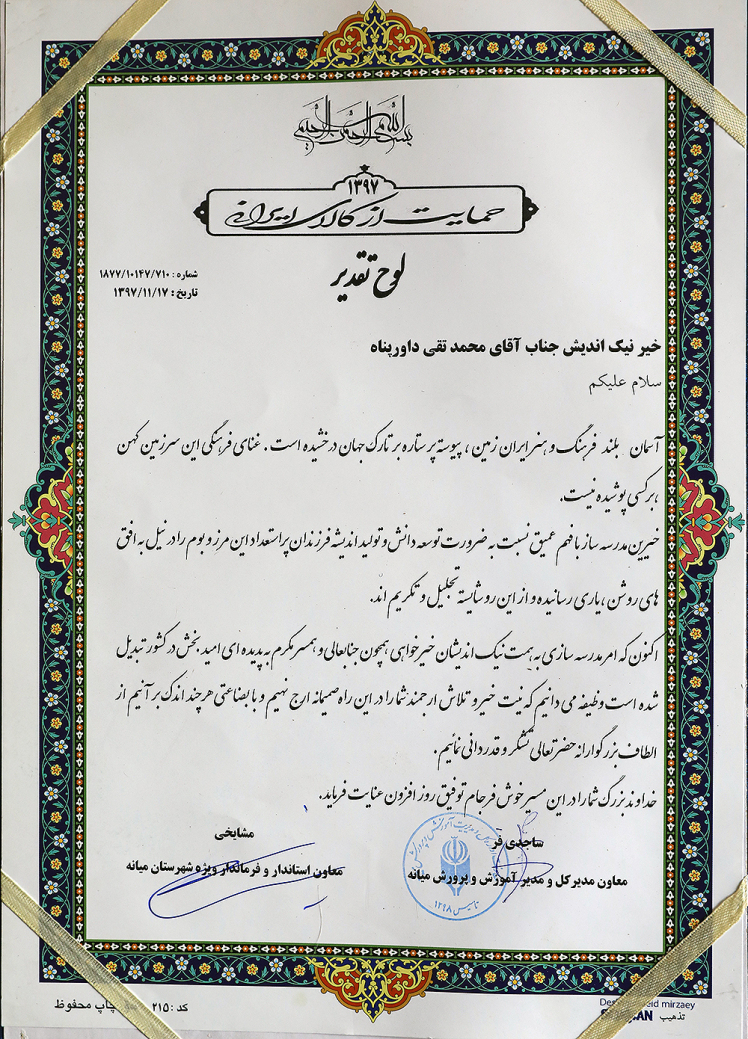 بسم الله الرحمن الرحیم
۱۳۹۷
حمایت از کالای ایرانی
لوح تقدیر
شماره : ۱۸۷۷/۱۰۱۴۷/۷۱۰
تاریخ : ۱۳۹۷/۱۱/۱۷
خیر نیک اندیش جناب آقای محمد تقی داورپناه
سلام علیکم
آسمان بلند فرهنگ و هنر ایران زمین ، پیوسته پر ستاره بر تارک جهان درخشیده است . غنای فرهنگی این سرزمین کهن
بر کسی پوشیده نیست.
خیرین مدرسه ساز با فهم عمیق نسبت به ضرورت توسعه دانش و تولید اندیشه فرزندان پر استعداد این مرز و بوم را در نیل به افق
های روشن ، یاری رسانیده و از این رو شایسته تجلیل و تکریم اند.
اکنون که امر مدرسه سازی به همت نیک اندیشان خیرخواهی همچون جنابعالی و همسر مکرم به پدیده ای امید بخش در کشور تبدیل
شده است وظیفه می دانیم که نیت خیر و تلاش ارجمند شما را در این راه صمیمانه ارج نهیم و با بضاعتی هر چند اندک بر آنیم از
الطاف بزرگوارانه حضرتعالی تشکر و قدردانی نمائیم.
خداوند بزرگ شما را در این مسیر خوش فرجام توفیق روز افزون عنایت فرماید.
ساجدی فر
معاون مدیر کل و مدیر آموزش و پرورش میانه
مشایخی
معاون استاندار و فرماندار ویژه شهرستان میانه
تاسیس ۱۲۹۸
کد : ۲۱۵
چاپ محفوظ
mirzaey
تذهیب